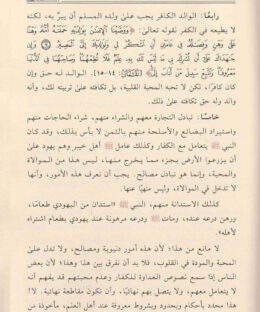 رابعًا: الوالد الكافر يجب على ولده المسلم أن يبرَّ به، لكنه
لا يطيعه في الكفر لقوله تعالى: ﴿وَوَصَّيْنَا الْإِنسَانَ بِوَالِدَيْهِ حَمَلَتْهُ أُمُّهُ وَهْنًا
عَلَىٰ وَهْنٍ وَفِصَالُهُ فِي عَامَيْنِ أَنِ اشْكُرْ لِي وَلِوَالِدَيْكَ إِلَيَّ الْمَصِيرُ ۝ وَإِن
جَاهَدَاكَ عَلَىٰ أَن تُشْرِكَ بِي مَا لَيْسَ لَكَ بِهِ عِلْمٌ فَلَا تُطِعْهُمَا وَصَاحِبْهُمَا فِي الدُّنْيَا
مَعْرُوفًا وَاتَّبِعْ سَبِيلَ مَنْ أَنَابَ إِلَيَّ﴾ [لقمان: ١٤-١٥]. الوالد له حق وإن
كان كافرًا، لكن لا تحبه المحبة القلبية، بل تكافئه على تربيته لك، وأنه
والد وله حق تكافئه على ذلك.
خامسًا: تبادل التجارة معهم والشراء منهم، شراء الحاجات منهم
واستيراد البضائع والأسلحة منهم بالثمن لا بأس بذلك، وقد كان
النبي ﷺ يتعامل مع الكفار وكذلك عامل ﷺ أهل خيبر وهم يهود على
أن يزرعوا الأرض بجزء مما يخرج منها، ليس هذا من الموالاة
والمحبة، وإنما هو تبادل مصالح. يجب أن نعرف هذه الأمور، وأنها
لا تدخل في الموالاة، وليس منهيًا عنها.
كذلك الاستدانة منهم، النبي ﷺ «استدان من اليهودي طعامًا،
ورهن درعه عنده»، ومات ﷺ «ودرعه مرهونة عند يهودي بطعام اشتراه
لأهله».
لا مانع من هذا؛ لأن هذه أمور دنيوية ومصالح، ولا تدل على
المحبة والمودة في القلوب، فلا بد أن نفرق بين هذا وهذا؛ لأن بعض
الناس إذا سمع نصوص العداوة للكفار وعدم محبتهم قد يفهم أنه
لا يتعامل معهم، ولا يتصل بهم نهائيًا، وأن تكون مقاطعة نهائية. لا!
هذا محدد بأحكام وبحدود وبشروط معروفة عند أهل العلم، مأخوذة من